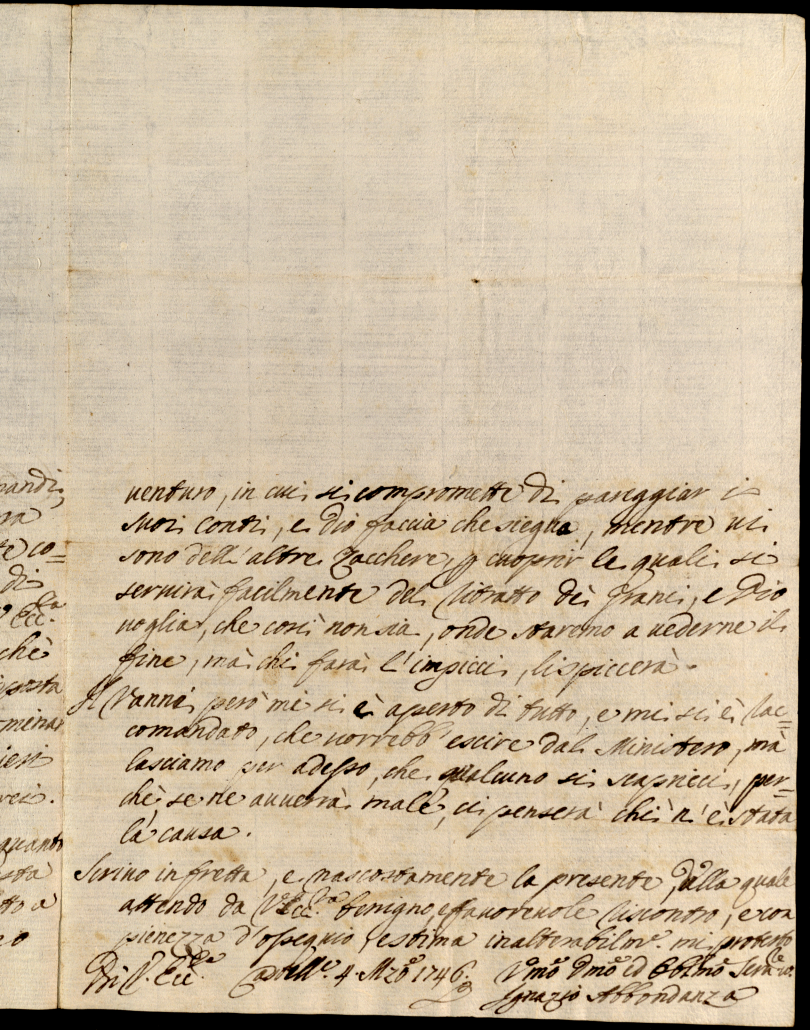 pandi,
ra
te co=
di
Ecc.ª
chè
posta
minar
ieri
reci.
quanto
sta
tto a
no
venturo, in cui si compromette di pareggiar i
suoi conti, e Dio faccia che siegua, mentre vi
sono dell'altre zacchere, p cuoprir le quali si
servirà facilmente del ritratto dei grani, e Dio
voglia, che così non sia, onde staremo a vederne il
fine, mà chi farà l'impicci, li spiccerà.
Il Vanni però mi si è aperto di tutto, e mi si è rac=
comandato, che vorrebb' escire dal Ministero, mà
lasciamo per adesso, che qualcuno si scapricci, per=
chè se ne avverrà male, ci penserà chi n'è stata
la causa.
Scrivo in fretta, e nascostamente la presente, dalla quale
attendo da V. Ecc.ª benigno, e favorevole riscontro, e con
pienezza d'ossequio, e stima inalterabilm.e mi protesto
Di V. Ecc.ª Castell.º 4. Mzo 1746.
Vmo Dmo ed Obbmo Serv.re
Ignazio Abbondanza